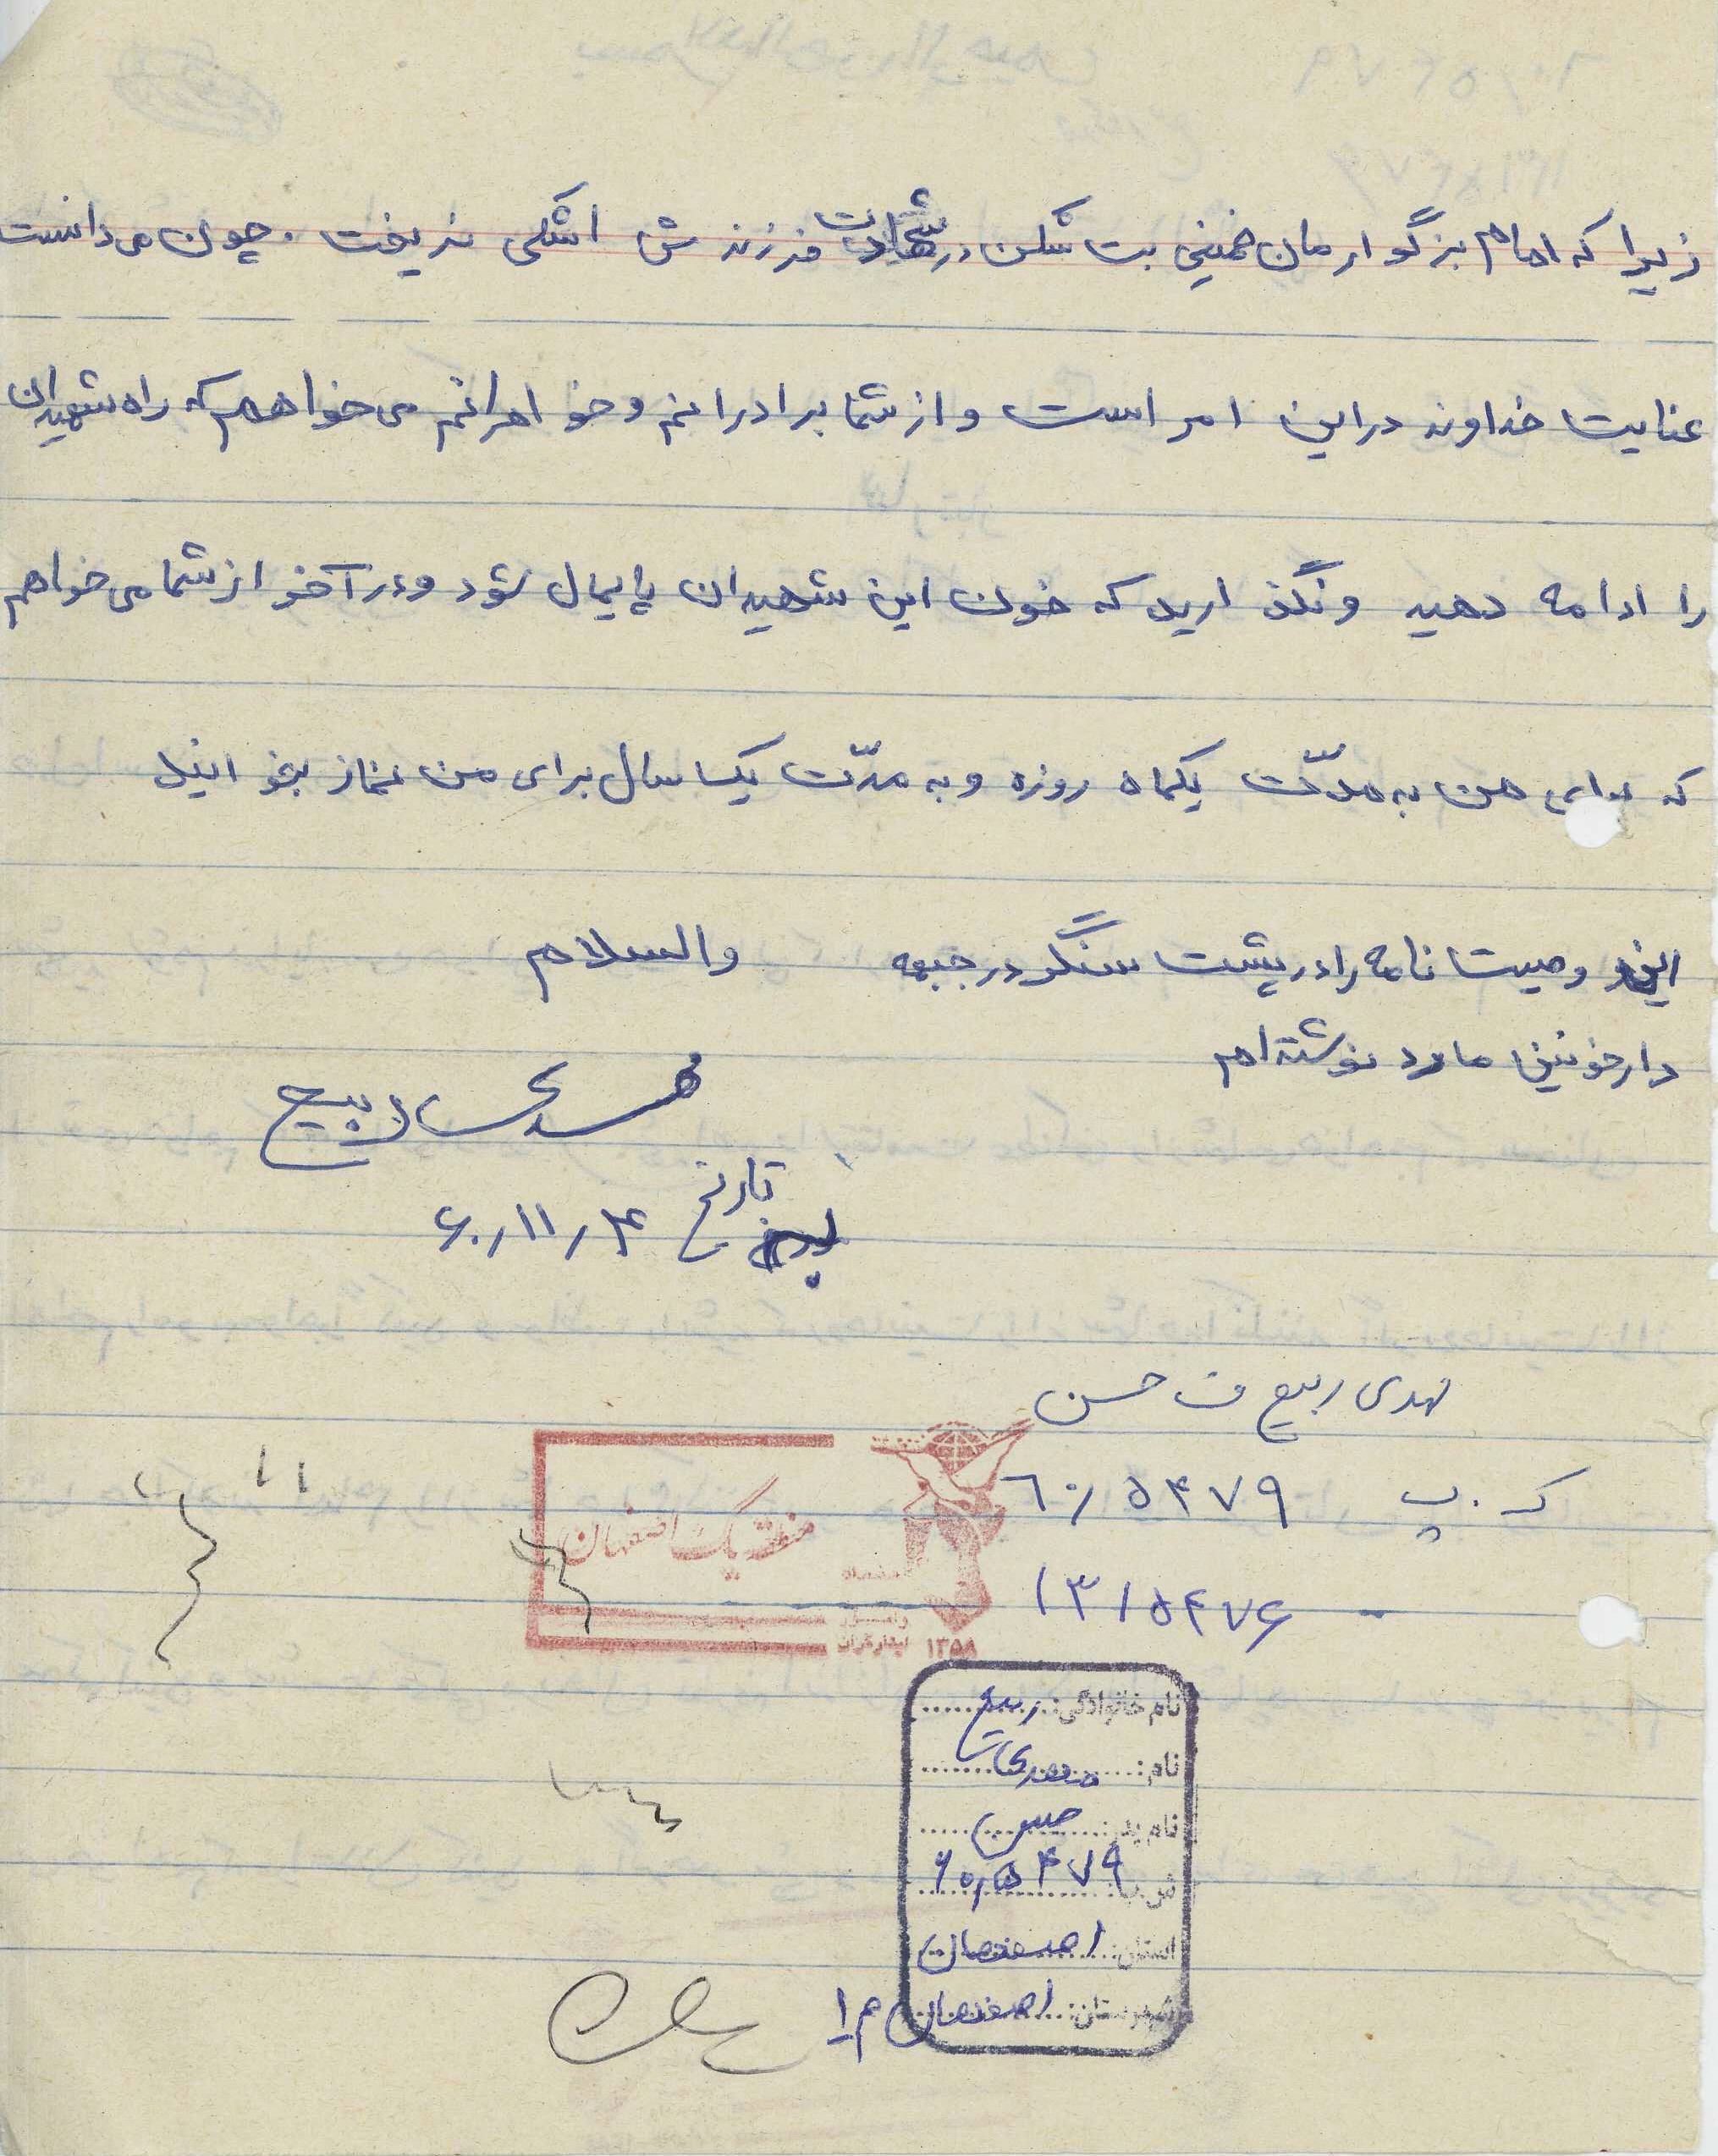 زیرا که امام بزرگوارمان خمینی بت شکن در شهادت فرزندش اشکی نریخت . چون می دانست
عنایت خداوند در این امر است و از شما برادرانم و خواهرانم می خواهم که راه شهیدان
را ادامه دهید و نگذارید که خون این شهیدان پایمال شود و در آخر از شما می خواهم
که برای من به مدّت یکماه روزه و به مدّت یکسال برای من نماز بخوانید
این وصیت نامه را در پشت سنگر در جبهه والسلام
دارخوئین مارد نوشته ام
مهدی ربیع
تاریخ ۶۰/۱۱/۴
مهدی ربیع ف حسن
ک . پ ۶۰/۵۴۷۹
۱۳/۵۴۷۶
منطقه یک اصفهان
ایثارگران ۱۳۵۸
نام خانوادگی: ربیع
نام: مهدی
نام پدر: حسن
ش.پ: ۶۰/۵۴۷۹
استان: اصفهان
شهرستان: اصفهان م ۱